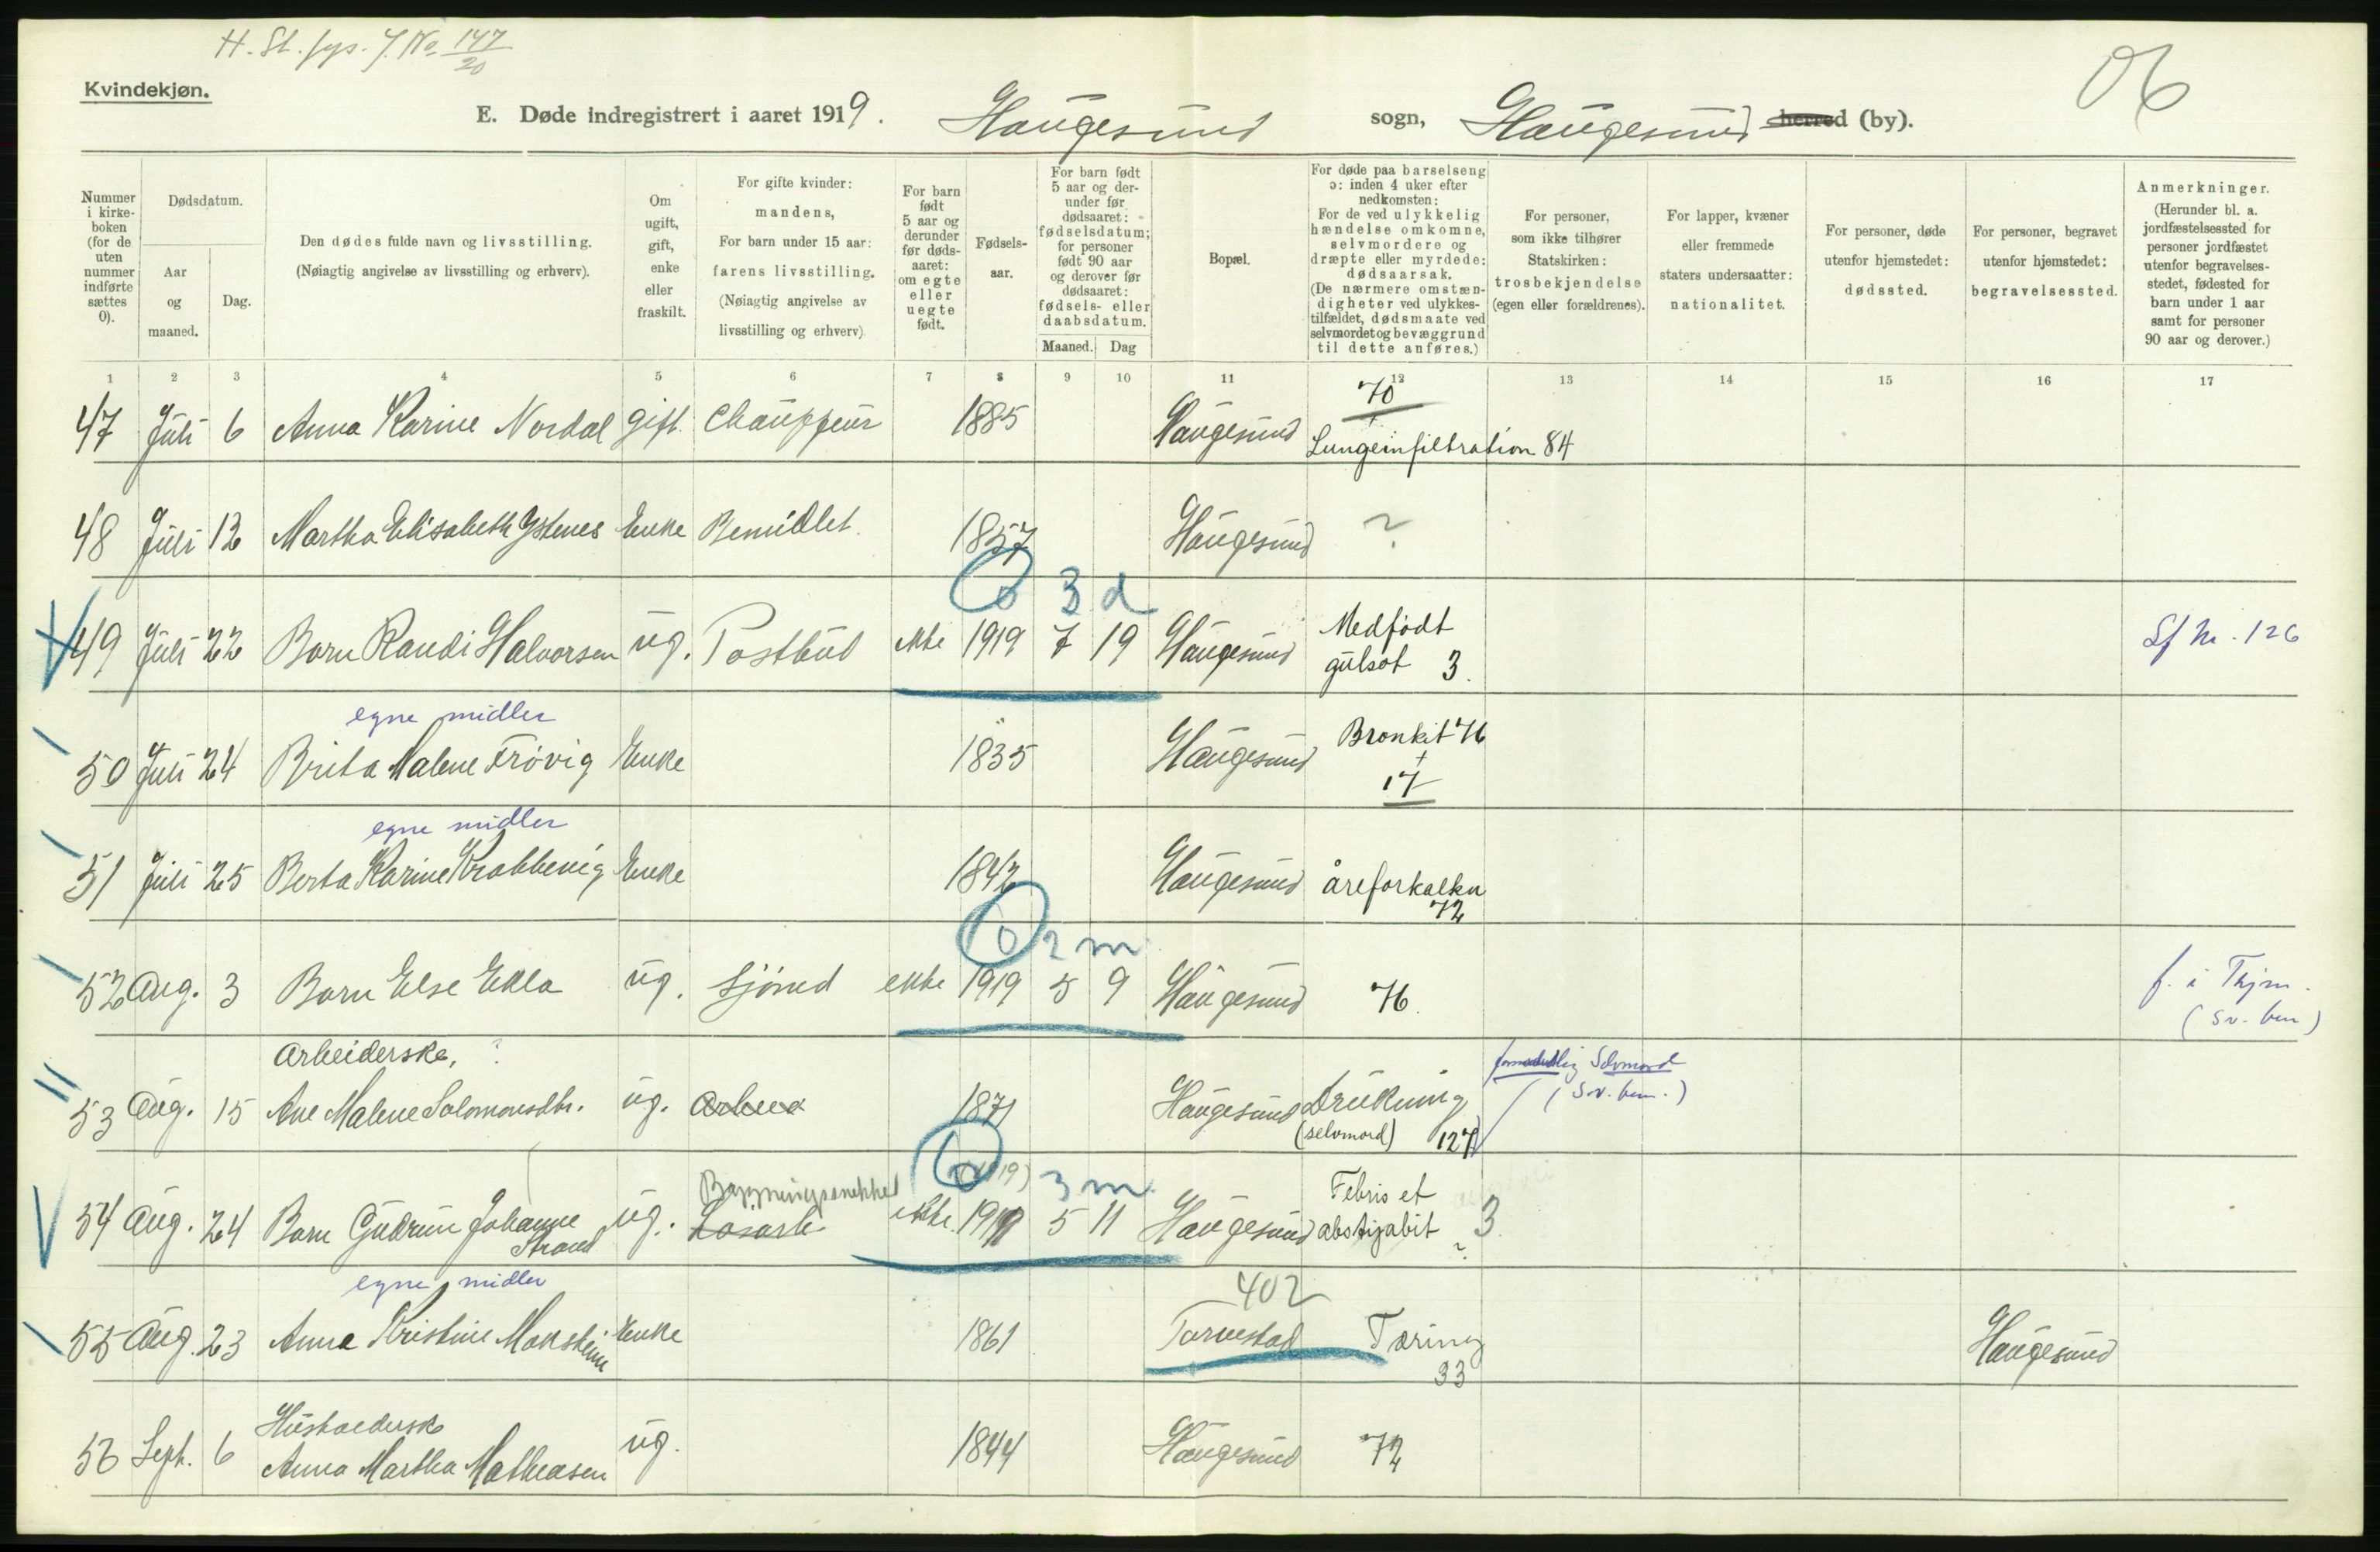 H. St. fys. J. No. 147/20
06
Kvindekjøn.
E. Døde indregistrert i aaret 1919. Haugesund sogn, Haugesund herred (by).
Nummer i kirke-boken (for de uten nummer indførte sættes 0).
Dødsdatum.
Aar og maaned.
Dag.
Den dødes fulde navn og livsstilling.
(Nøiagtig angivelse av livsstilling og erhverv).
Om ugift, gift, enke eller fraskilt.
For gifte kvinder: mandens,
For barn under 15 aar: farens livsstilling.
(Nøiagtig angivelse av livsstilling og erhverv)
For barn født 5 aar og derunder før døds-aaret: om egte eller uegte født.
Fødsels-aar.
For barn født 5 aar og der-under før dødsaaret: fødselsdatum; for personer født 90 aar og derover før dødsaaret: fødsels- eller daabsdatum.
Maaned. Dag
Bopæl.
For døde paa barselseng ɔ: inden 4 uker efter nedkomsten:
For de ved ulykkelig hændelse omkomne, selvmordere og dræpte eller myrdede: dødsaarsak.
(De nærmere omstæn-digheter ved ulykkes-tilfældet, dødsmaate ved selvmordet og bevæggrund til dette anføres.)
For personer, som ikke tilhører Statskirken: trosbekjendelse (egen eller forældrenes).
For lapper, kvæner eller fremmede staters undersaatter: nationalitet.
For personer, døde utenfor hjemstedet: dødssted.
For personer, begravet utenfor hjemstedet: begravelsessted.
Anmerkninger.
(Herunder bl. a. jordfæstelsessted for personer jordfæstet utenfor begravelses-stedet, fødested for barn under 1 aar samt for personer 90 aar og derover.)
1 2 3 4 5 6 7 8 9 10 11 12 13 14 15 16 17
70
47 Juli 6 Anna Karine Nordal gift. Chauffeur 1885 Haugesund Lungeinfiltration 84
48 Juli 12 Martha Elisabeth Ystenes Enke Bemidlet. 1857 Haugesund ?
0 3 d
49 Juli 22 Barn Randi Halvorsen ug. Postbud ekte 1919 7 19 Haugesund Medfødt gulsot 3. Sf Nr. 126
egne midler
50 Juli 24 Brita Malene Frøvig Enke 1835 Haugesund Bronkit 76
17
egne midler
51 Juli 25 Berta Karine Krabbevig Enke 1842 Haugesund åreforkalkn 72
0 2 m
52 Aug. 3 Barn Else Ekla ug. Sjømd ekte 1919 5 9 Haugesund 76. f. i
(sv. ben)
Arbeiderske, ?
53 Aug. 15 Ane Malene Salomonsdtr. ug. 1871 Haugesund Drukning (selvmord) 127 formodentlig Selvmord
(sv. ben.)
Bygningssnekker 0 (1919) 3 m
54 Aug. 24 Barn Gudrun Johanne Strand ug. Løsarb. ekte. 1919 5 11 Haugesund Febris et 3.
?
egne midler
402
55 Aug. 23 Anna Kristine Mansheim Enke 1861 Torvestad Tæring 33 Haugesund
Husholderske
56 Sept. 6 Anna Martha Mathiasen ug. 1844 Haugesund 72